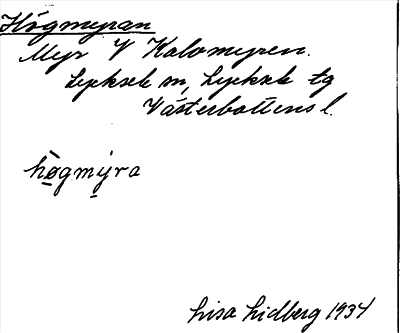 Högmyran
Myr V Kalomyren.
Lycksele sn, Lycksele tg
Västerbottens l.
hø̀gmýra
Lisa Lidberg 1934